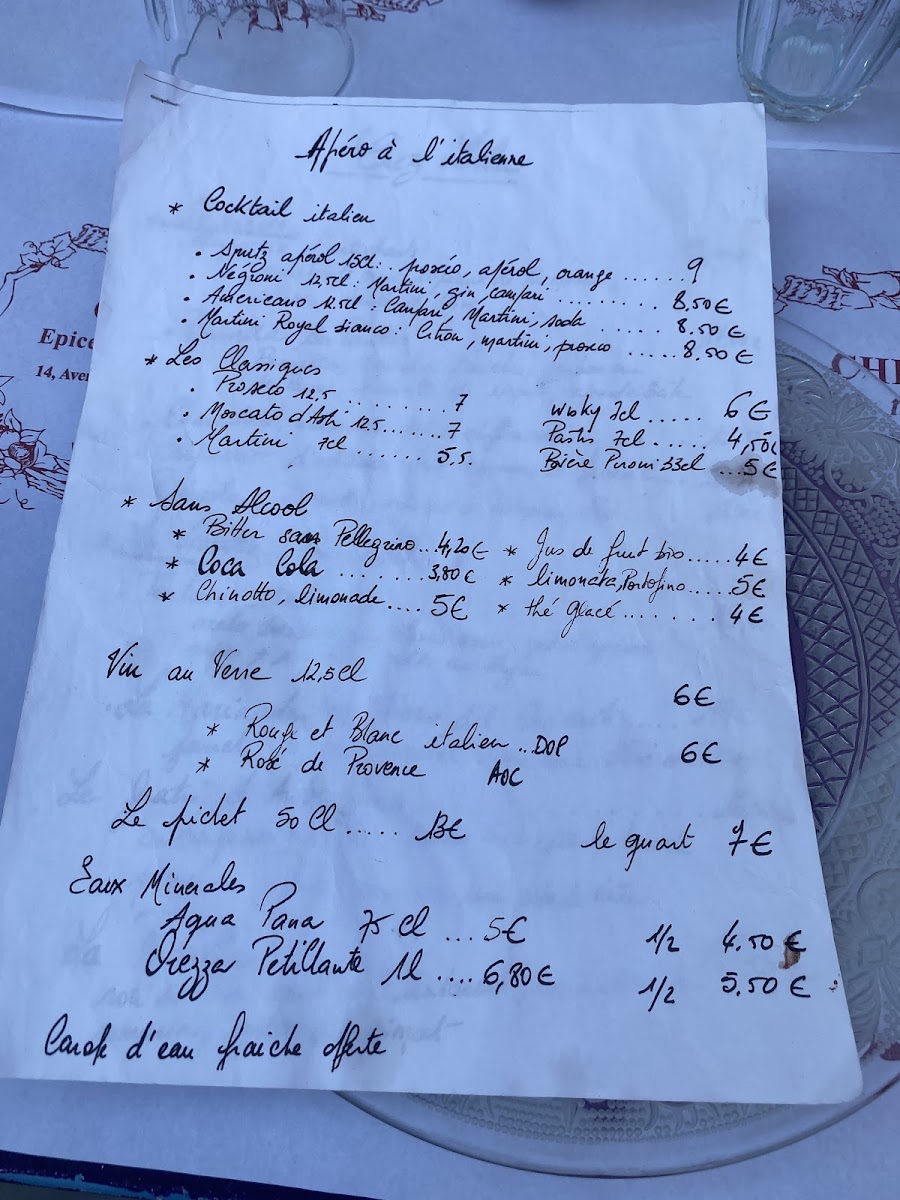 Apéro à l'italienne
* Cocktail italien
• Spritz apérol 15cl: prosecio, apérol, orange ...... 9
• Négroni 12,5cl: Martini, gin, campari .......... 8,50€
• Americano 12.5cl: Campari, Martini, soda ...... 8.50€
• Martini Royal bianco: Citron, martini, proseco ..... 8.50€
* Les Classiques
• Proseco 12,5 .......... 7
• Moscato d'Asti 12.5 ....... 7
• Martini 7cl ....... 5,5.
Wisky 7cl ..... 6€
Pastis 7cl ..... 4,50€
Bière Peroni 33cl ...5€
* Sans Alcool
* Bitter san Pellegrino...4,20€
* Coca Cola ........ 3,80€
* Chinotto, limonade.... 5€
* Jus de fruit bio..... 4€
* limonata, Portofino..... 5€
* thé glacé ........ 4€
Vin au Verre 12,5cl
6€
* Rouge et Blanc italien ..DOP
6€
* Rosé de Provence AOC
Le pichet 50 Cl ..... 13€
le quart 7€
Eaux Minerales
Aqua Pana 75 cl ... 5€
1/2 4.50€
Orezza Petillante 1l .... 6,80€
1/2 5.50€
Carafe d'eau fraiche offerte
Epice
14, Aver
CHE